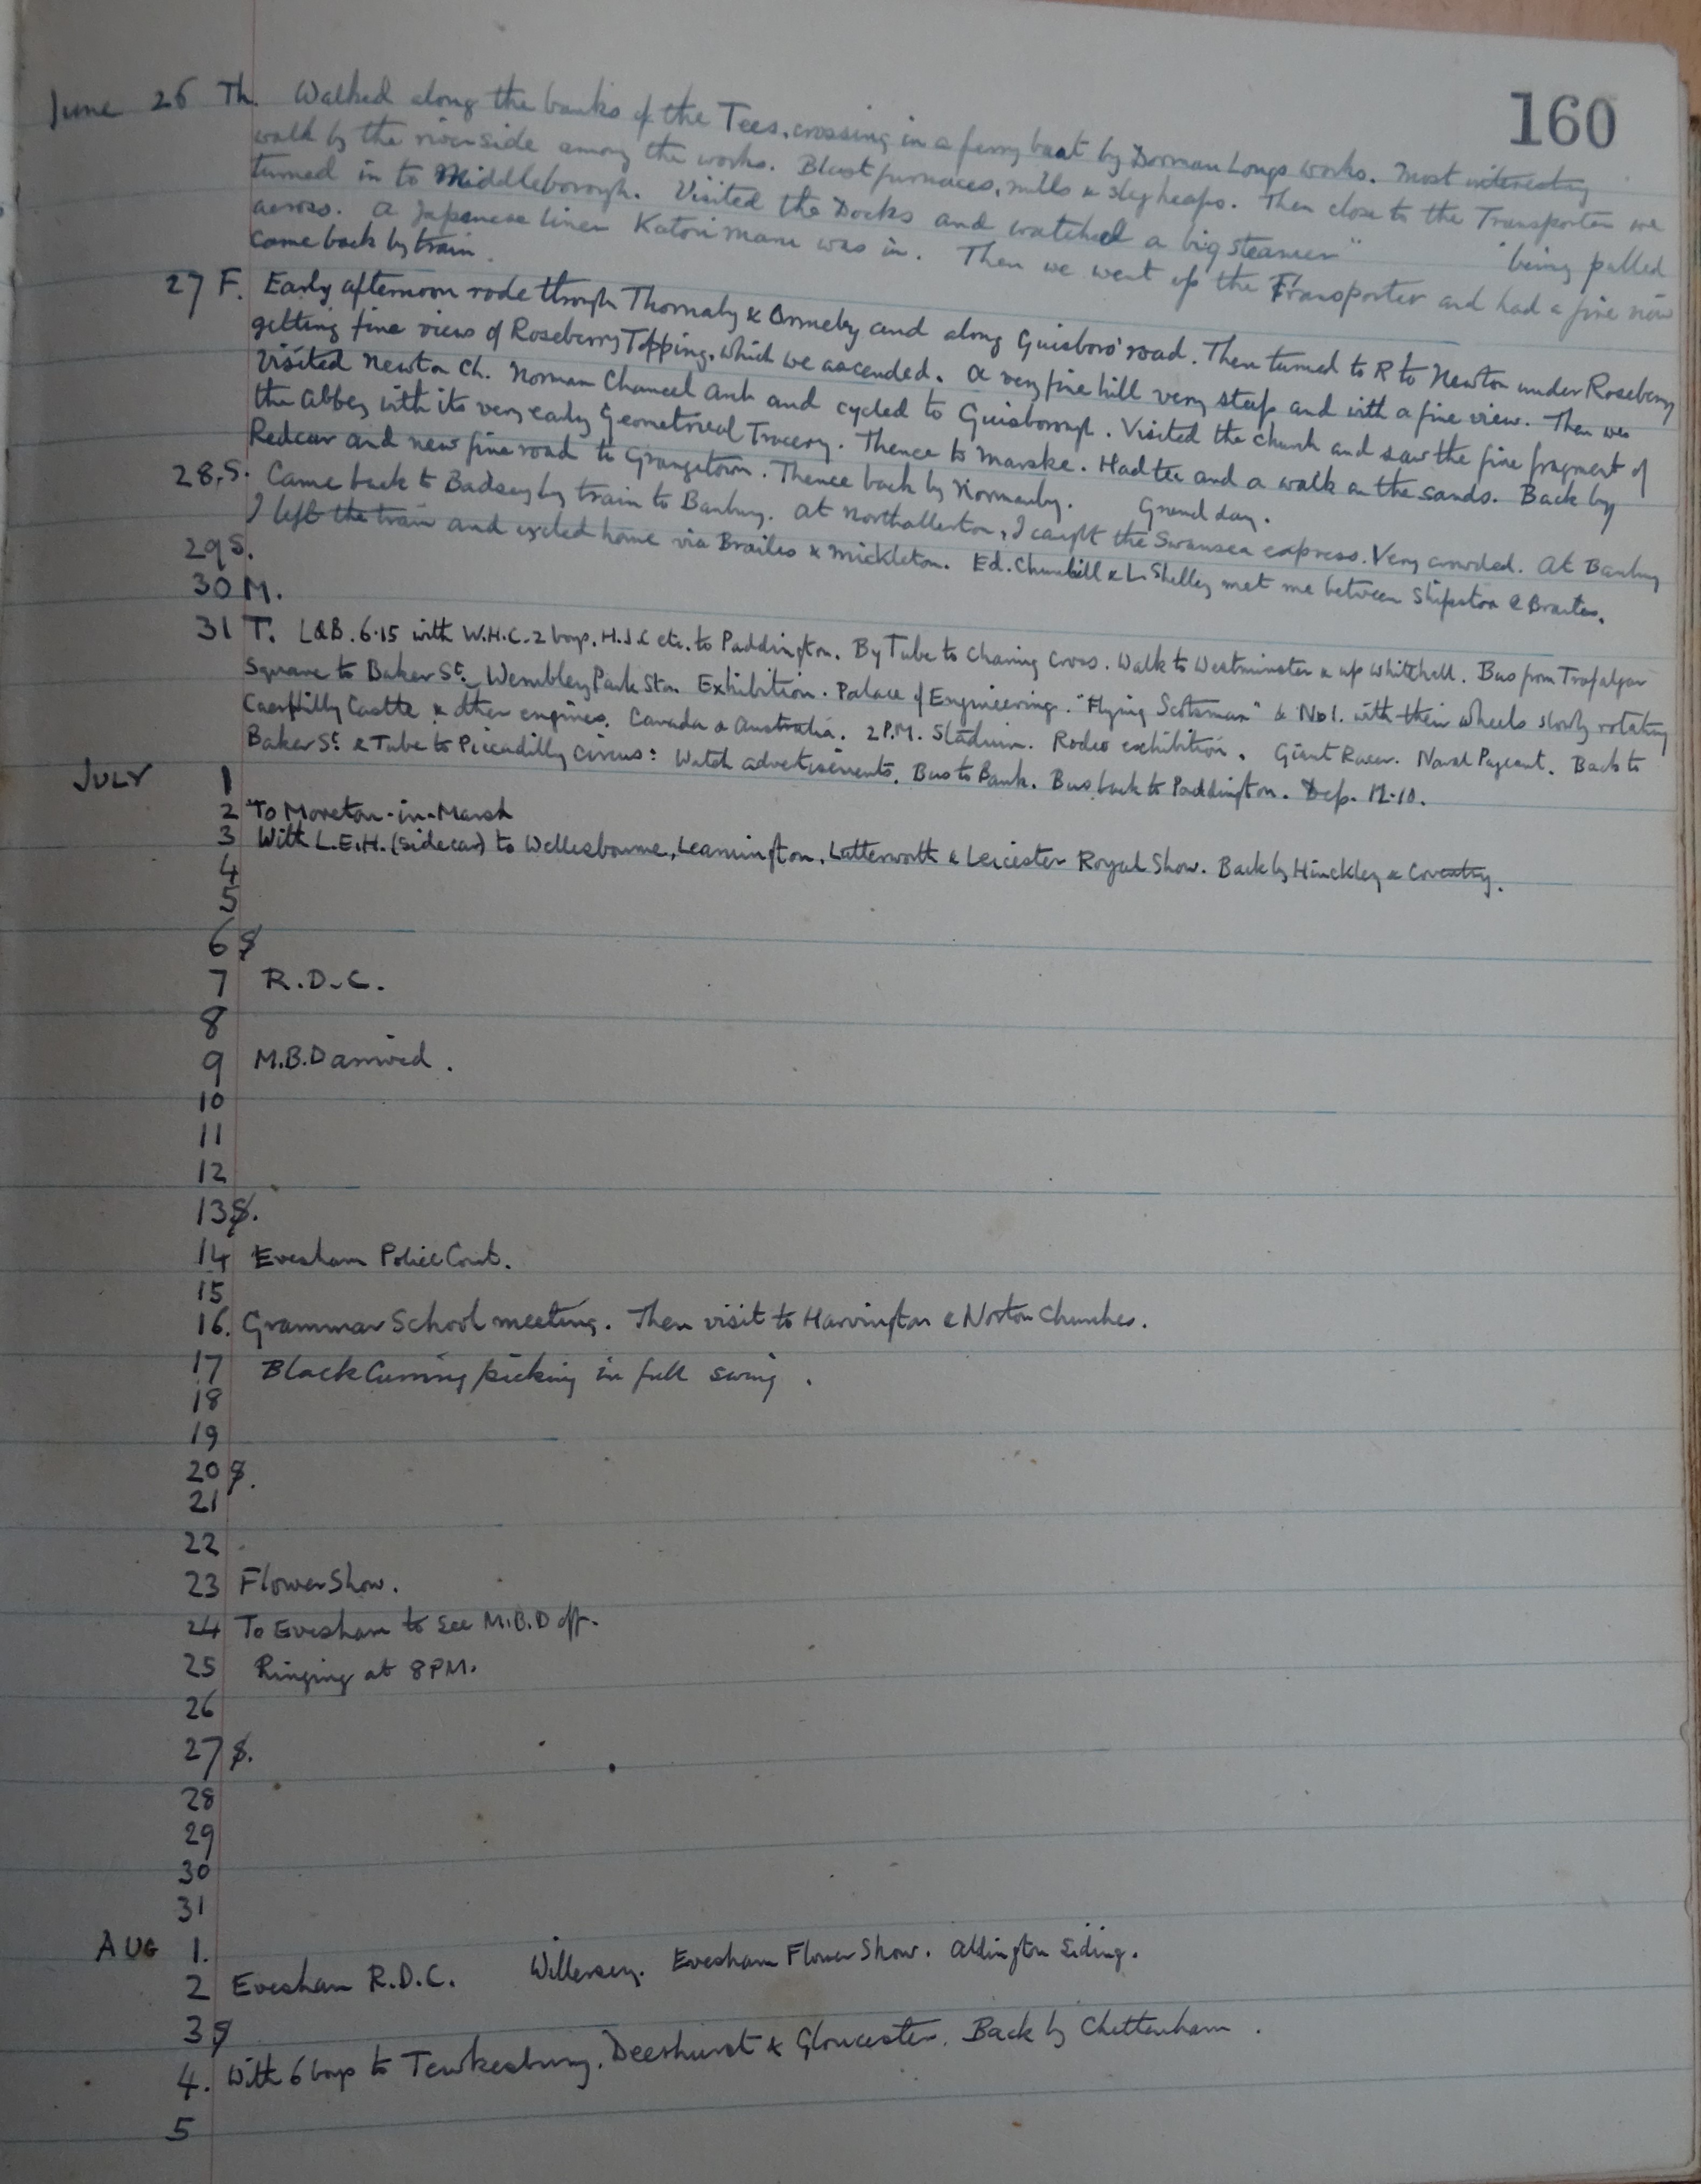 160
June 26 Th. Walked along the banks of the Tees, crossing in a ferry boat by Dorman Longs works. Most interesting
walk by the riverside among the works. Blast furnaces, mills & slag heaps. Then close to the Transporter we
turned in to Middleborough. Visited the Docks and watched a big steamer " " being pulled
across. A Japanese liner Katori Maru was in. Then we went up the Transporter and had a fine view
Came back by train.
27 F. Early afternoon rode through Thornaby & Ormeby and along Guisboro' road. Then turned to R to Newton under Roseberry
getting fine views of Roseberry Topping, which we ascended. A very fine hill very steep and with a fine view. Then we
visited Newton Ch. Norman Chancel Arch and cycled to Guisborough. Visited the church and saw the fine fragment of
the Abbey with its very early Geometrical Tracery. Thence to Marske. Had tea and a walk on the sands. Back by
Redcar and new fine road to Grangetown. Thence back by Normanby. Grand day.
28 S. Came back to Badsey by train to Banbury. At Northallerton, I caught the Swansea express. Very crowded. At Banbury
I left the train and cycled home via Brailes & Mickleton. Ed. Churchill & L. Shelley met me between Shipston & Brailes.
29 S.
30 M.
31 T. L&B. 6.15 with W.H.C. 2 boys, H.J.C etc. to Paddington. By Tube to Charing Cross. Walk to Westminster & up Whitehall. Bus from Trafalgar
Square to Baker St. Wembley Park Stn. Exhibition. Palace of Engineering. "Flying Scotsman" & No 1. with their wheels slowly rotating
Caerphilly Castle & other engines. Canada & Australia. 2 P.M. Stadium. Rodeo exhibition. Giant Racer. Naval Pageant. Back to
Baker St. & Tube to Piccadilly Circus: Watch advertisements. Bus to Bank. Bus back to Paddington. Dep. 12.10.
JULY 1
2 To Moreton-in-Marsh
3 With L.E.H. (sidecar) to Wellesbourne, Leamington, Lutterworth & Leicester Royal Show. Back by Hinckley & Coventry.
4
5
6 S
7 R.D.C.
8
9 M.B.D arrived.
10
11
12
13 S.
14 Evesham Police Court.
15
16. Grammar School meeting. Then visit to Harvington & Norton Churches.
17 Black Curring picking in full swing.
18
19
20 S.
21
22
23 Flower Show.
24 To Evesham to see M.B.D off.
25 Ringing at 8 PM.
26
27 S.
28
29
30
31
AUG 1.
2 Evesham R.D.C. Willersey. Evesham Flower Show. Aldington Siding.
3 S
4. With 6 boys to Tewkesbury, Deerhurst & Gloucester. Back by Cheltenham.
5